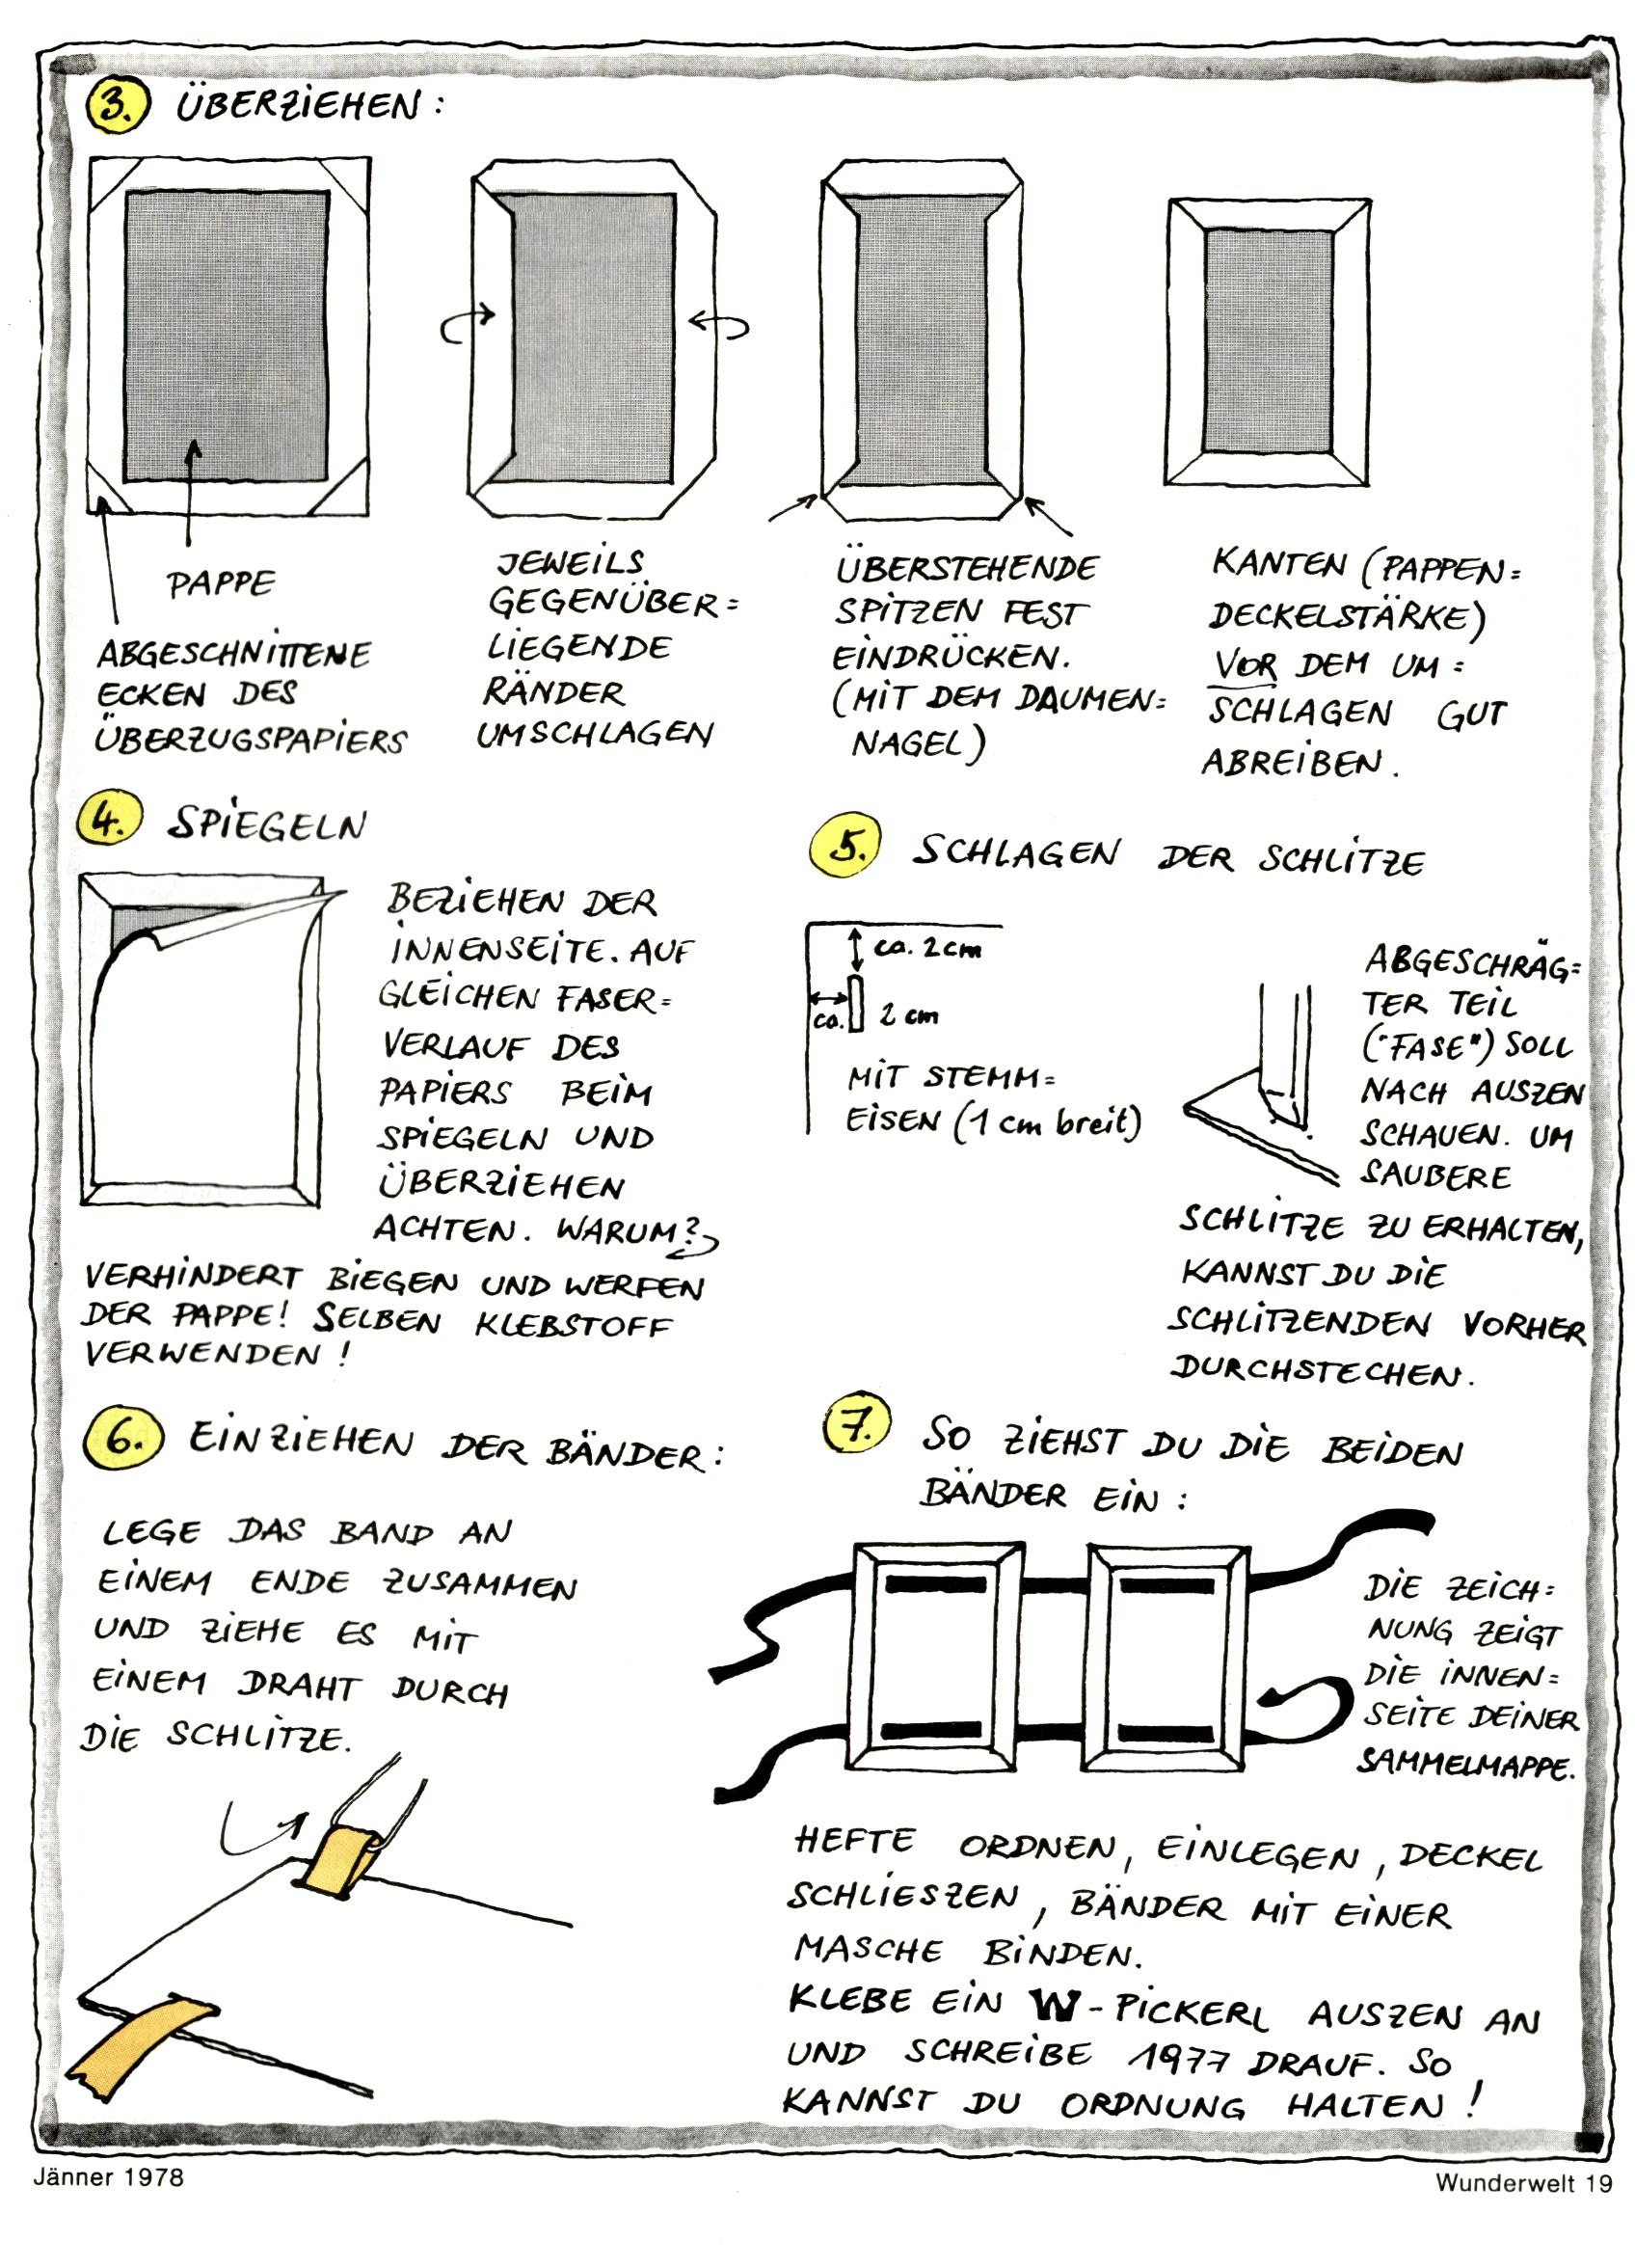 3. ÜBERZIEHEN:
PAPPE
ABGESCHNITTENE
ECKEN DES
ÜBERZUGSPAPIERS
JEWEILS
GEGENÜBER=
LIEGENDE
RÄNDER
UMSCHLAGEN
ÜBERSTEHENDE
SPITZEN FEST
EINDRÜCKEN.
(MIT DEM DAUMEN=
NAGEL)
KANTEN (PAPPEN=
DECKELSTÄRKE)
VOR DEM UM=
SCHLAGEN GUT
ABREIBEN.
4. SPIEGELN
BEZIEHEN DER
INNENSEITE. AUF
GLEICHEN FASER=
VERLAUF DES
PAPIERS BEIM
SPIEGELN UND
ÜBERZIEHEN
ACHTEN. WARUM?
VERHINDERT BIEGEN UND WERFEN
DER PAPPE! SELBEN KLEBSTOFF
VERWENDEN!
5. SCHLAGEN DER SCHLITZE
ca. 2cm
ca. 2 cm
MIT STEMM=
EISEN (1 cm breit)
ABGESCHRÄG=
TER TEIL
("FASE") SOLL
NACH AUSZEN
SCHAUEN. UM
SAUBERE
SCHLITZE ZU ERHALTEN,
KANNST DU DIE
SCHLITZENDEN VORHER
DURCHSTECHEN.
6. EINZIEHEN DER BÄNDER:
LEGE DAS BAND AN
EINEM ENDE ZUSAMMEN
UND ZIEHE ES MIT
EINEM DRAHT DURCH
DIE SCHLITZE.
7. SO ZIEHST DU DIE BEIDEN
BÄNDER EIN:
DIE ZEICH=
NUNG ZEIGT
DIE INNEN=
SEITE DEINER
SAMMELMAPPE.
HEFTE ORDNEN, EINLEGEN, DECKEL
SCHLIESZEN, BÄNDER MIT EINER
MASCHE BINDEN.
KLEBE EIN W-PICKERL AUSZEN AN
UND SCHREIBE 1977 DRAUF. SO
KANNST DU ORDNUNG HALTEN!
Jänner 1978
Wunderwelt 19